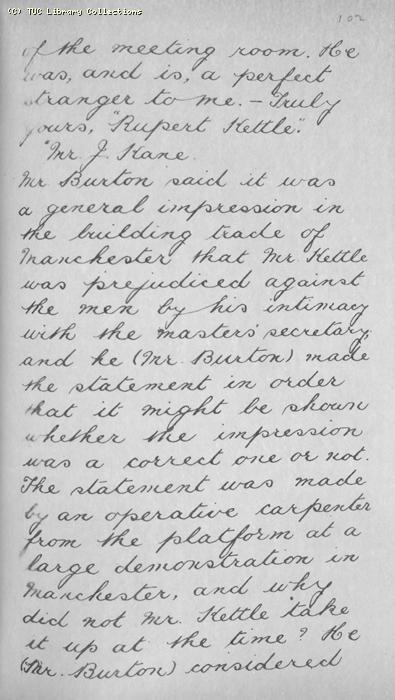 (C) TUC Library Collections
102
of the meeting room. He
was, and is, a perfect
stranger to me. – Truly
yours, "Rupert Kettle".
"Mr. J. Kane.
Mr Burton said it was
a general impression in
the building trade of
Manchester that Mr. Kettle
was prejudiced against
the men by his intimacy
with the masters' secretary,
and he (Mr. Burton) made
the statement in order
that it might be shown
whether the impression
was a correct one or not.
The statement was made
by an operative carpenter
from the platform at a
large demonstration in
Manchester, and why
did not Mr. Kettle take
it up at the time? He
(Mr. Burton) considered